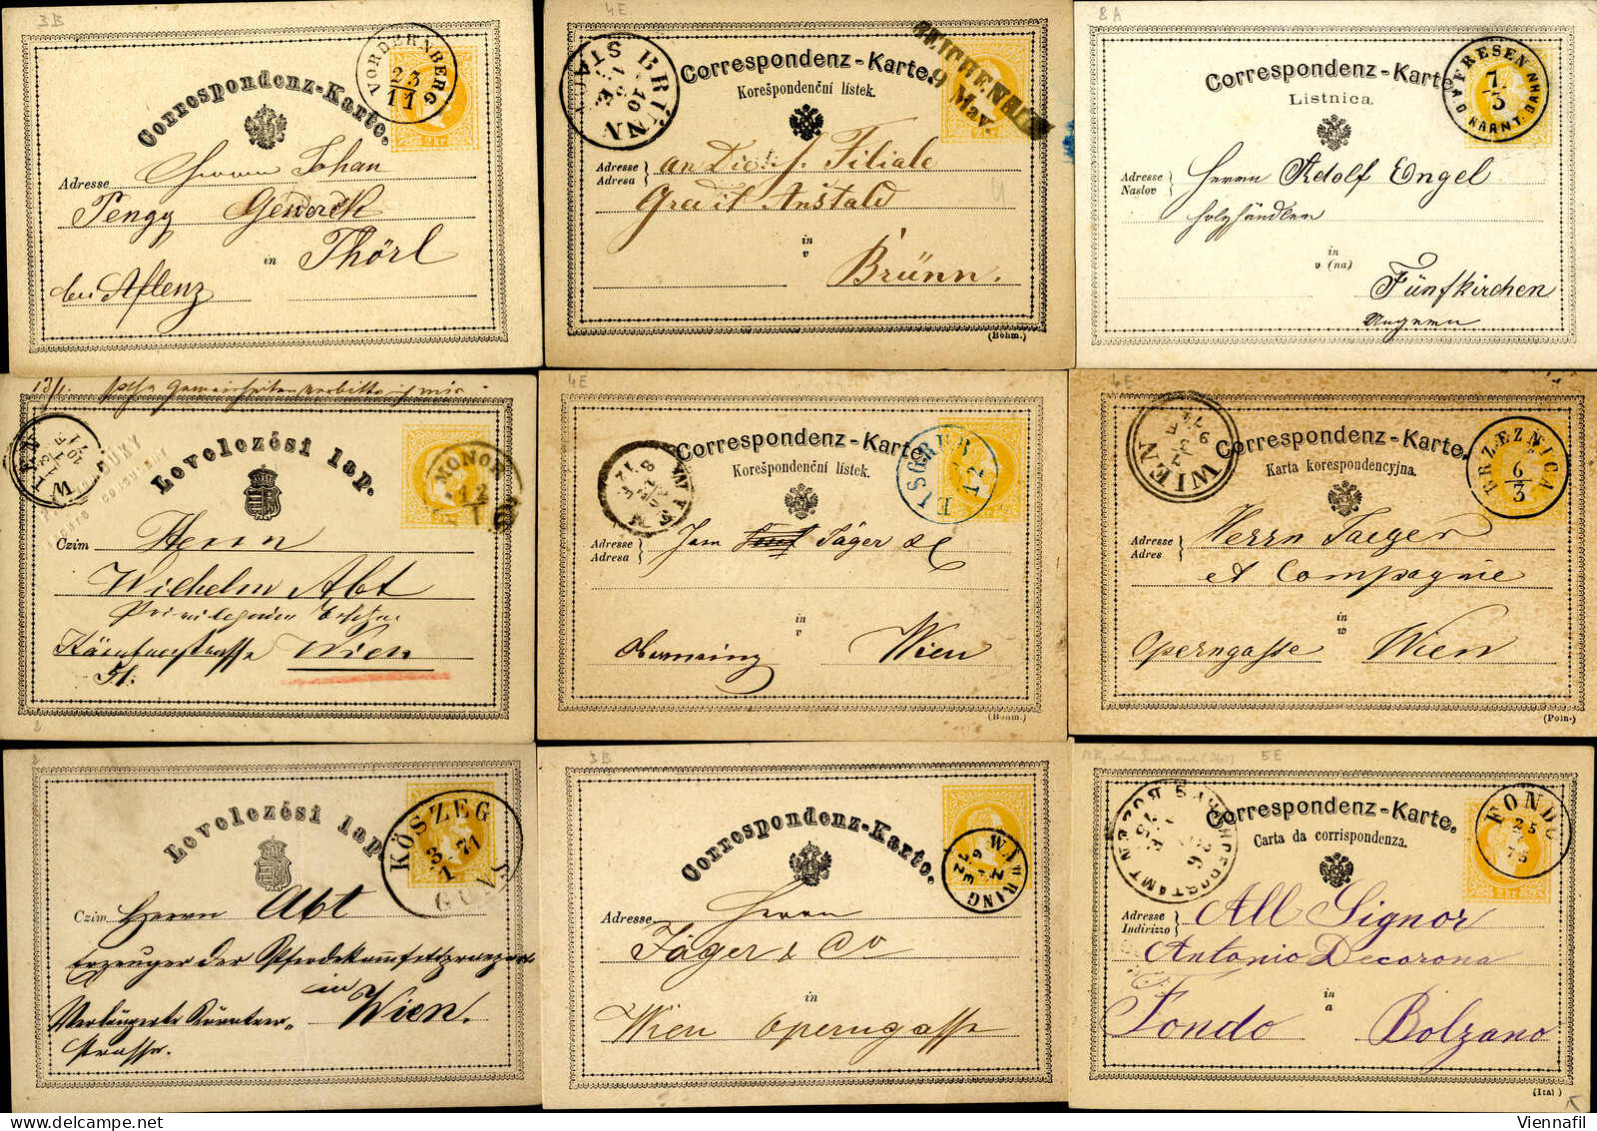 3B
VORDERNBERG
23/11
Correspondenz-Karte.
2 KR
Adresse Herrn Johan
Pengg Gewerck
in Thörl
bei Aflenz
4E
BRÜNN STADT
REICHENBERG
9 Mav.
Correspondenz-Karte.
Korešpondenční lístek.
Adresse
Adresa
Filiale
Credit Anstald
in
v Brünn.
(Böhm.)
8A
FRESEN
7/3
A.D. DRAU KÄRNT. BAHN
Correspondenz-Karte
Listnica.
Adresse
Naslov
Herrn Adolf Engel
Holzhändler
in
v (na) Fünfkirchen
Ungarn
13/1.
WIEN
MONOR
Levelezési lap.
Czim Herrn
Wilhelm Abt
Kärntnerstrasse Wien
4E
WIEN
EISGRUB
12
Correspondenz-Karte.
Korešpondenční lístek.
Adresse
Adresa
Jäger & C
in
v Wien
(Böhm.)
4E
WIEN
BRZEZNICA
6/3
Correspondenz-Karte.
Karta korespondencyjna.
Adresse
Adres
Herrn Jaeger
et Compagnie
in
w
Operngasse Wien
(Poln.)
2
KÖSZEG
3/1 71
GÜNS
Levelezési lap
Czim Herrn Abt
Erzeuger der
in Wien.
Verlängerte Kärntner-
strasse.
3B
WÄHRING
Correspondenz-Karte.
Adresse Herrn
Jäger & Co
in
Wien Operngasse
5E
BOZEN BAHNHOF POSTAMT
FONDO
25/6 75
Correspondenz-Karte.
Carta da corrispondenza.
2 KR
Adresse
Indirizzo
All Signor
Antonio Decorona
in
a
Fondo Bolzano
(Ital)
Viennafil